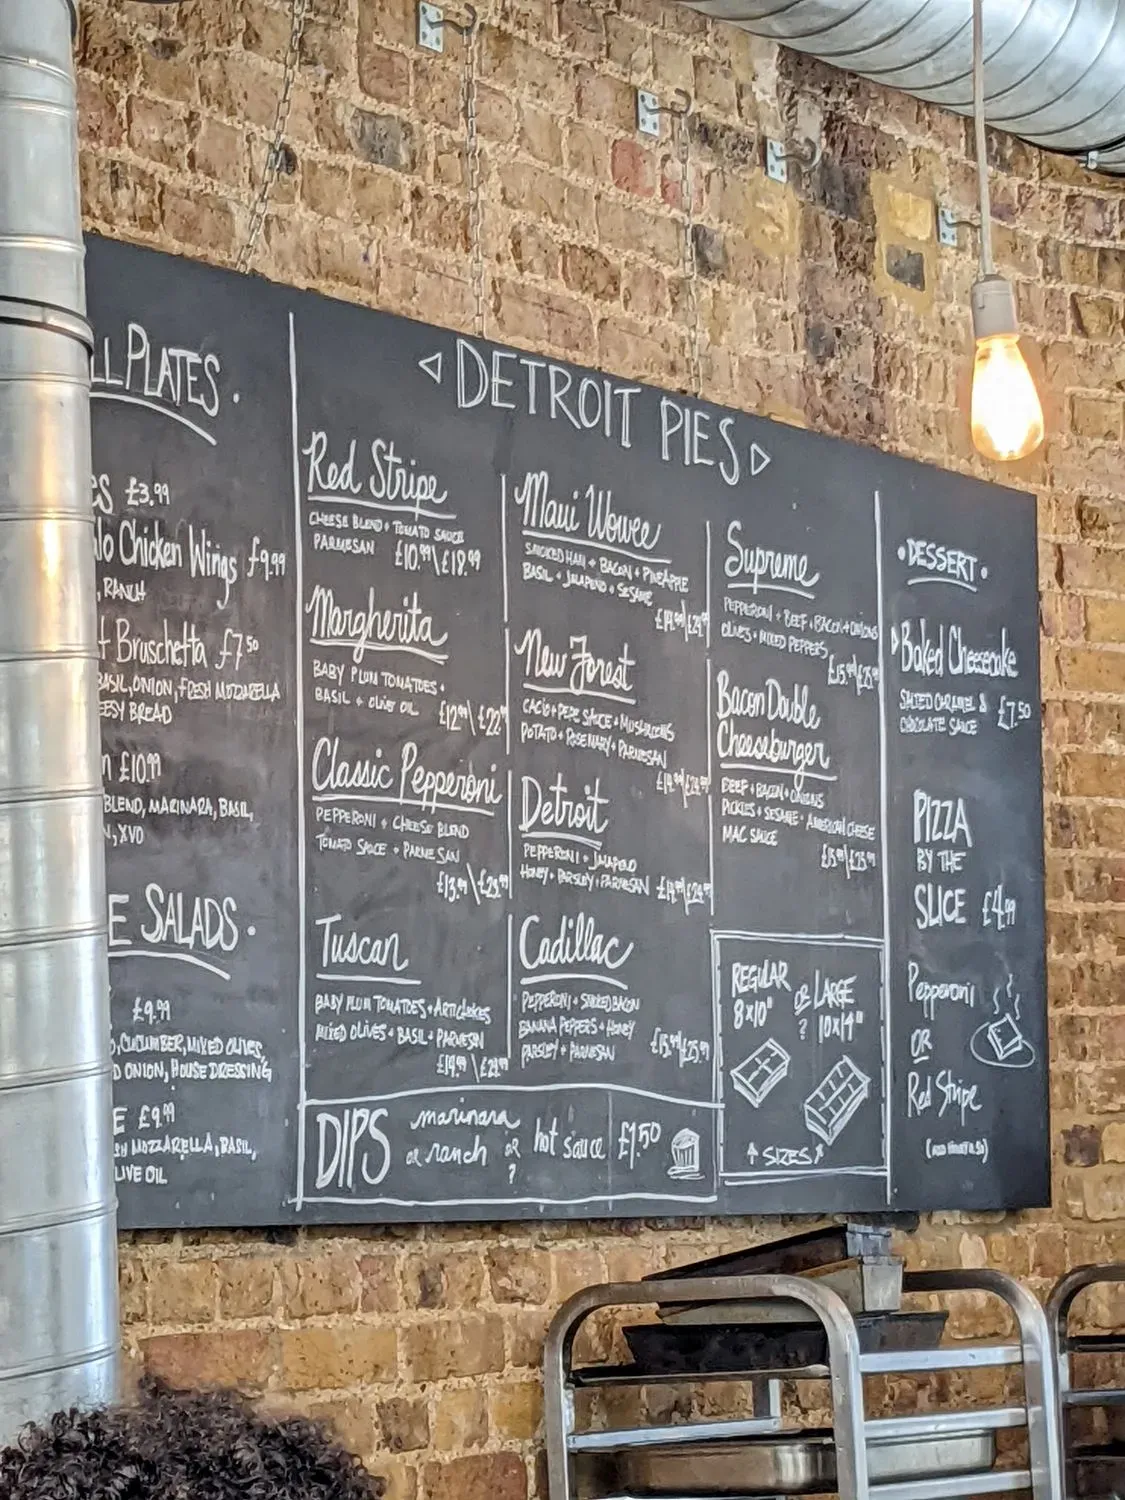 LLPLATES.
ES £3.99
lo Chicken Wings £9.99
, RANCH
t Bruschetta £7.50
BASIL, ONION, FRESH MOZZARELLA
EESY BREAD
n £10.99
BLEND, MARINARA, BASIL,
N, XVO
E SALADS.
£9.99
, CUCUMBER, MIXED OLIVES,
D ONION, HOUSE DRESSING
E £9.99
SH MOZZARELLA, BASIL,
LIVE OIL
DETROIT PIES
Red Stripe
CHEESE BLEND + TOMATO SAUCE
PARMESAN £10.99\£19.99
Margherita
BABY PLUM TOMATOES +
BASIL + OLIVE OIL £12.99\£22.99
Classic Pepperoni
PEPPERONI + CHEESE BLEND
TOMATO SAUCE + PARMESAN
£13.99\£23.99
Tuscan
BABY PLUM TOMATOES + ARTICHOKES
MIXED OLIVES + BASIL + PARMESAN
Maui Wowee
SMOKED HAM + BACON + PINEAPPLE
BASIL + JALAPENO + SESAME
New Forest
CACIO + PEPE SAUCE + MUSHROOMS
POTATO + ROSEMARY + PARMESAN
Detroit
PEPPERONI + JALAPENO
HONEY + PARSLEY + PARMESAN
Cadillac
PEPPERONI + SMOKED BACON
BANANA PEPPERS + HONEY
PARSLEY + PARMESAN £15.99/£25.99
Supreme
PEPPERONI + BEEF + BACON + ONIONS
OLIVES + MIXED PEPPERS
£15.99/£25.99
Bacon Double
Cheeseburger
BEEF + BACON + ONIONS
PICKLES + SESAME + AMERICAN CHEESE
MAC SAUCE
£15.99/£25.99
REGULAR
8x10"
OR
?
LARGE
10x14"
SIZES
DIPS
marinara
or ranch or
?
hot sauce
£1.50
• DESSERT •
Baked Cheesecake
SALTED CARAMEL &
CHOCOLATE SAUCE
£7.50
PIZZA
BY THE
SLICE £4.99
Pepperoni
OR
Red Stripe